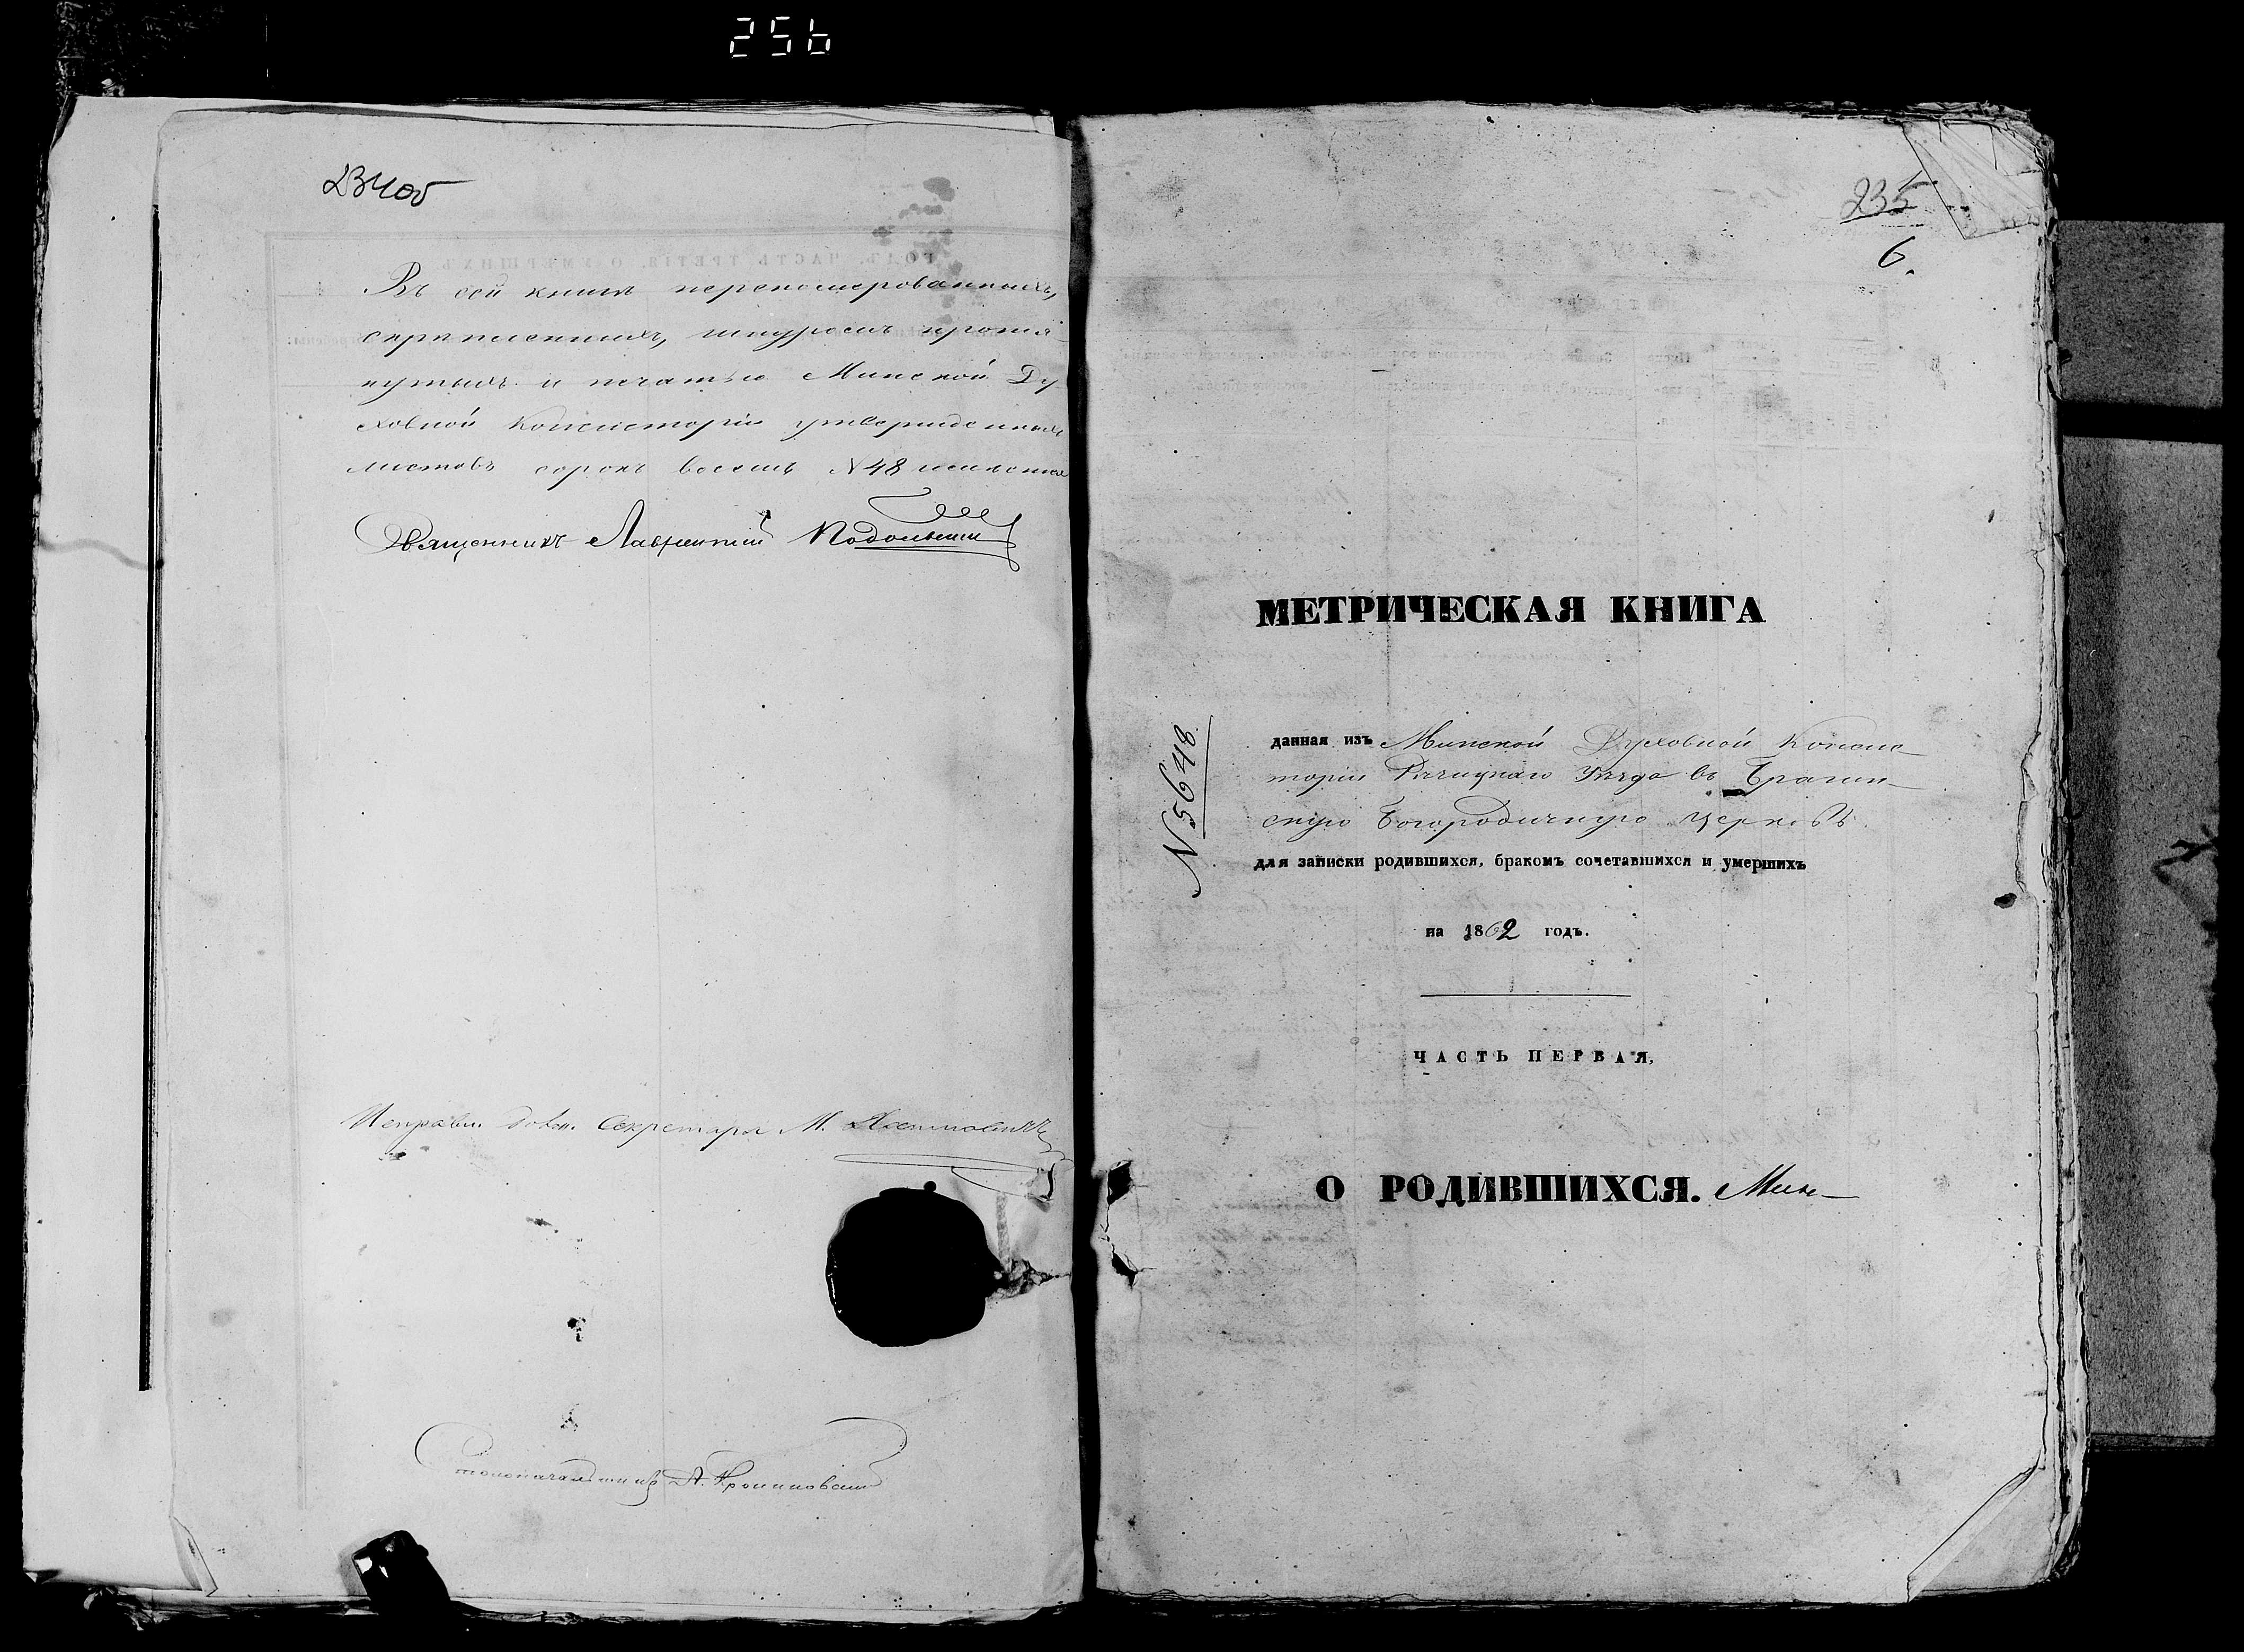 256
234об
Въ сей книгѣ переномерованныхъ,
скрѣпленныхъ, шнуромъ протя-
нутыхъ и печатью Минской Ду-
ховной Консисторіи утвержденныхъ
листовъ сорокъ восемь N 48
Священникъ Лаврентій Подольскій
Исправл. долж. Секретаря М.
Столоначальникъ А.
235
6.
МЕТРИЧЕСКАЯ КНИГА
N 5648
данная изъ Минской Духовной Консис-
торіи Рѣчицкаго Уѣзда въ Брагин-
скую Богородичную церковь
для записки родившихся, бракомъ сочетавшихся и умершихъ
на 1862 годъ.
ЧАСТЬ ПЕРВАЯ,
О РОДИВШИХСЯ. Мин-